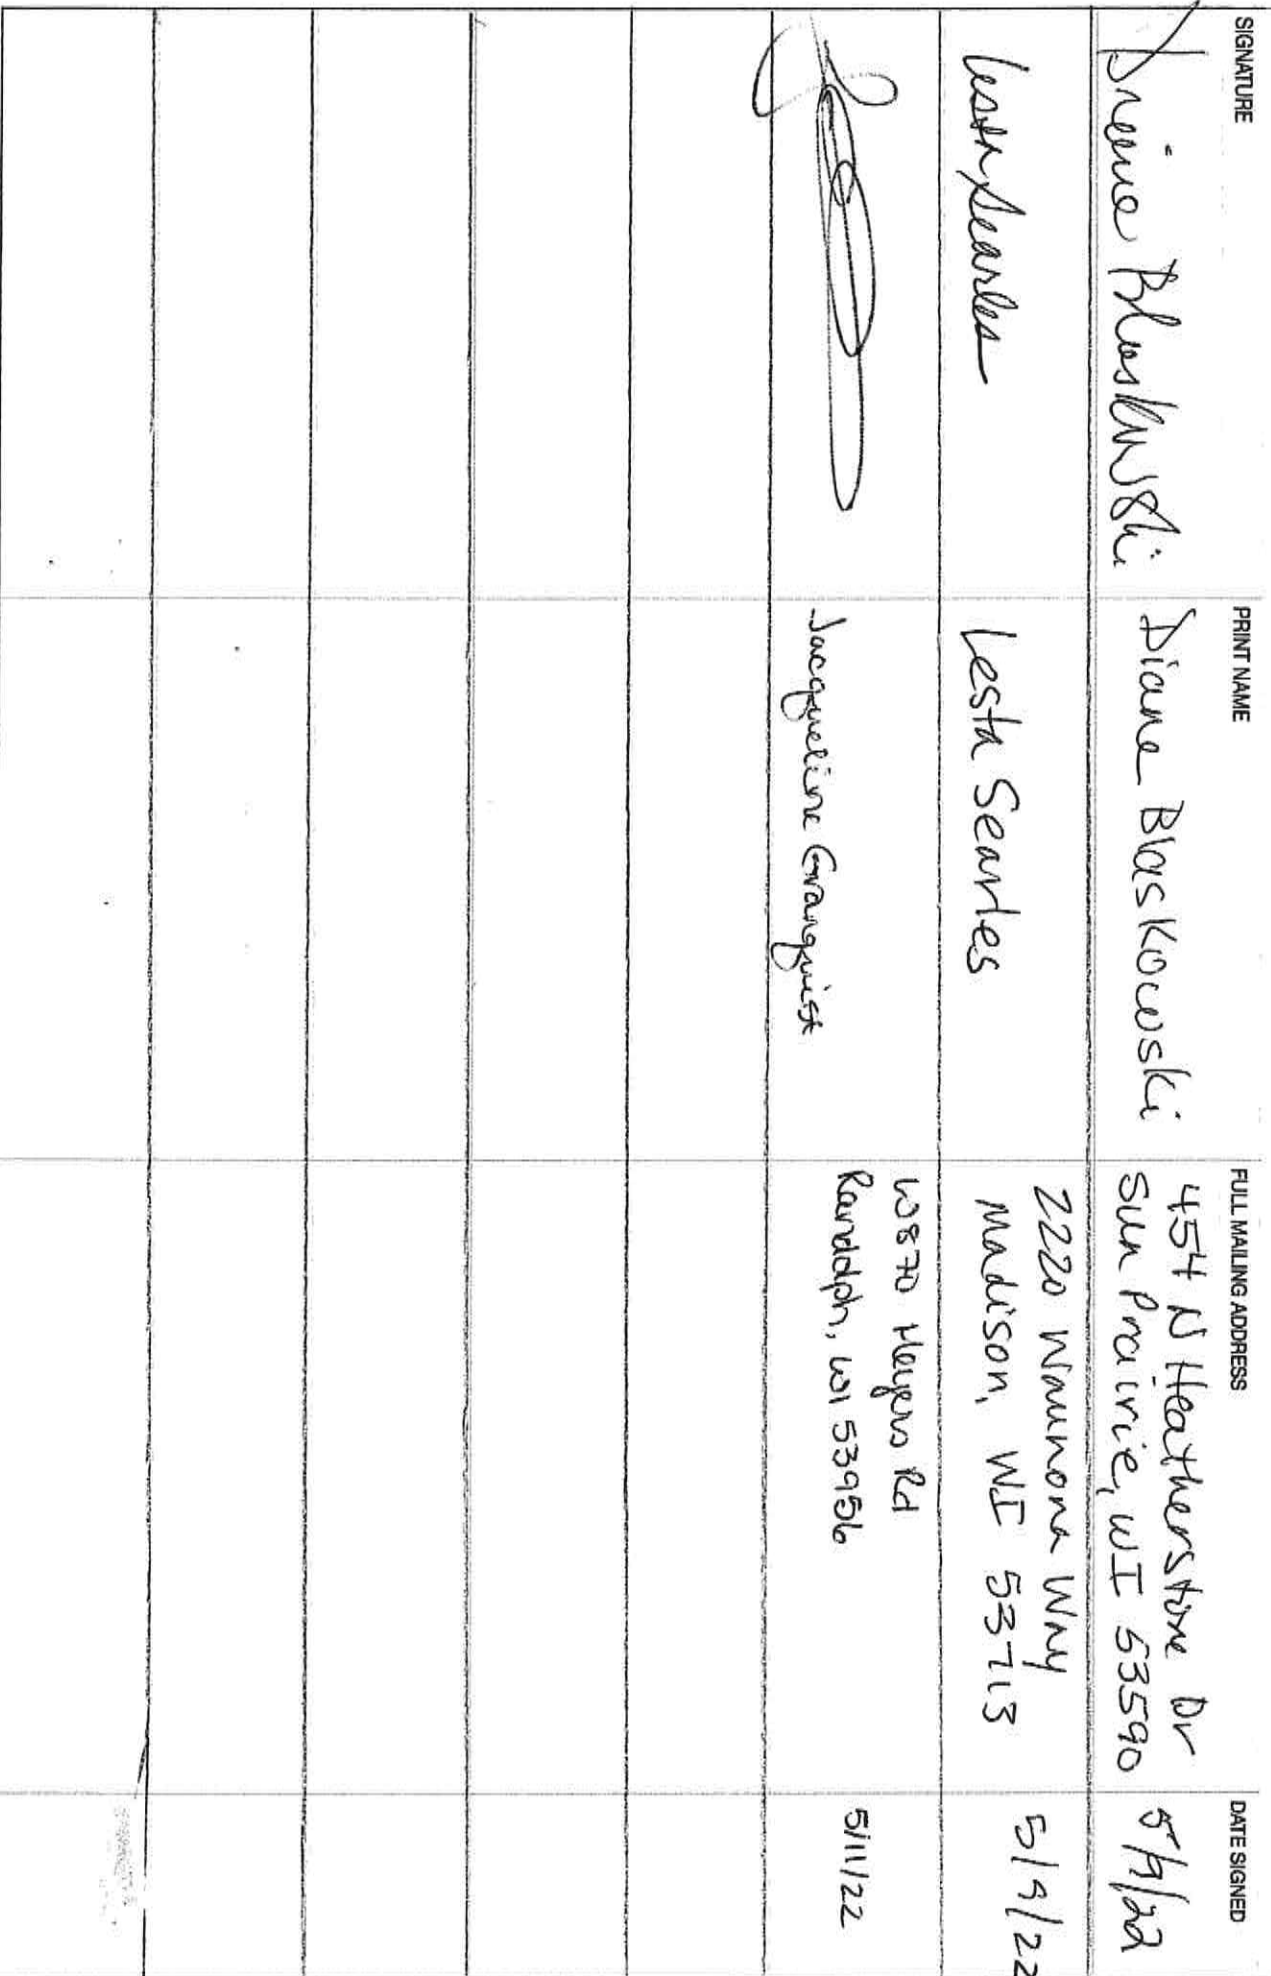 SIGNATURE PRINT NAME FULL MAILING ADDRESS DATE SIGNED
Diane Blaskowski Diane Blaskowski 454 N Heatherstone Dr 5/9/22
Sun Prairie, WI 53590
Lesta Searles Lesta Searles 2220 Waunona Way 5/9/22
Madison, WI 53713
Jacqueline Granquist W870 Heyers Rd 5/11/22
Randolph, WI 53956